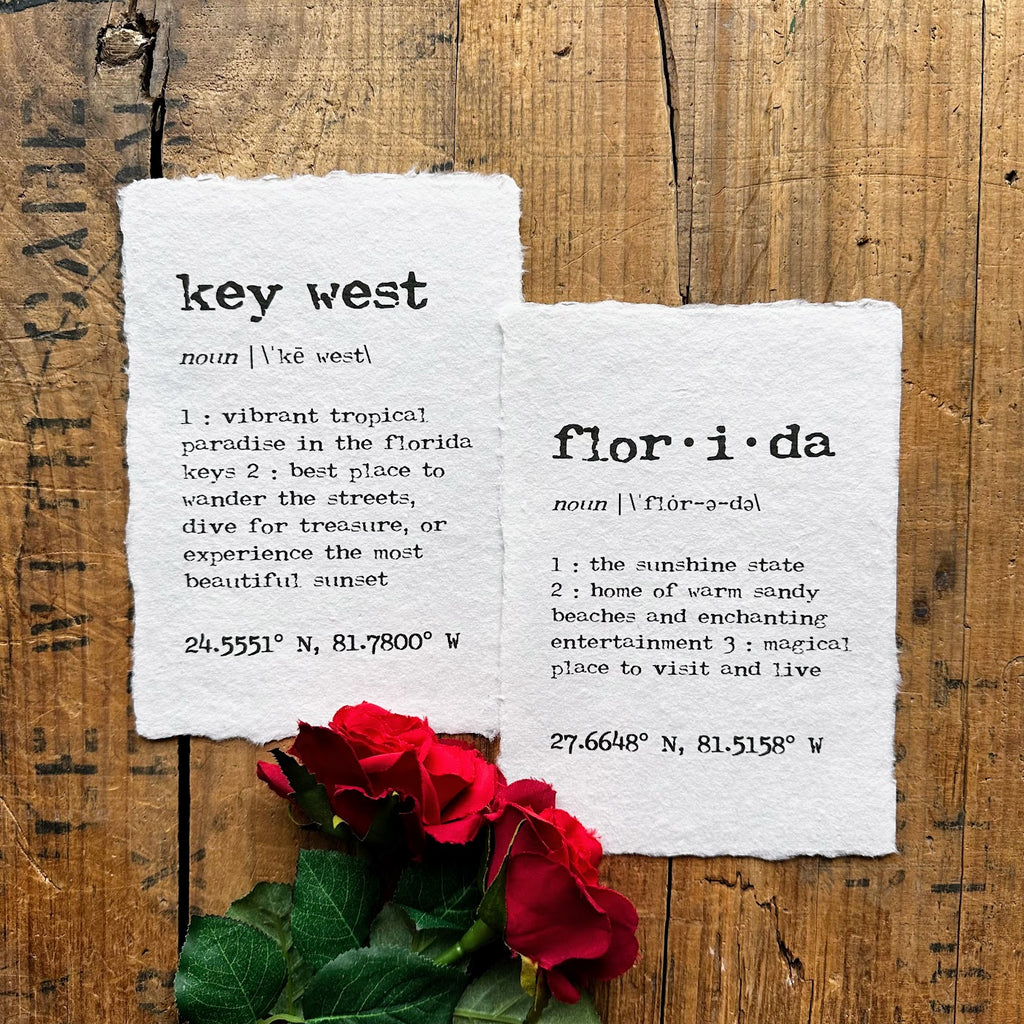 key west
noun | \ˈkē west\
1 : vibrant tropical
paradise in the florida
keys 2 : best place to
wander the streets,
dive for treasure, or
experience the most
beautiful sunset
24.5551° N, 81.7800° W
flor·i·da
noun | \ˈflȯr-ə-də\
1 : the sunshine state
2 : home of warm sandy
beaches and enchanting
entertainment 3 : magical
place to visit and live
27.6648° N, 81.5158° W